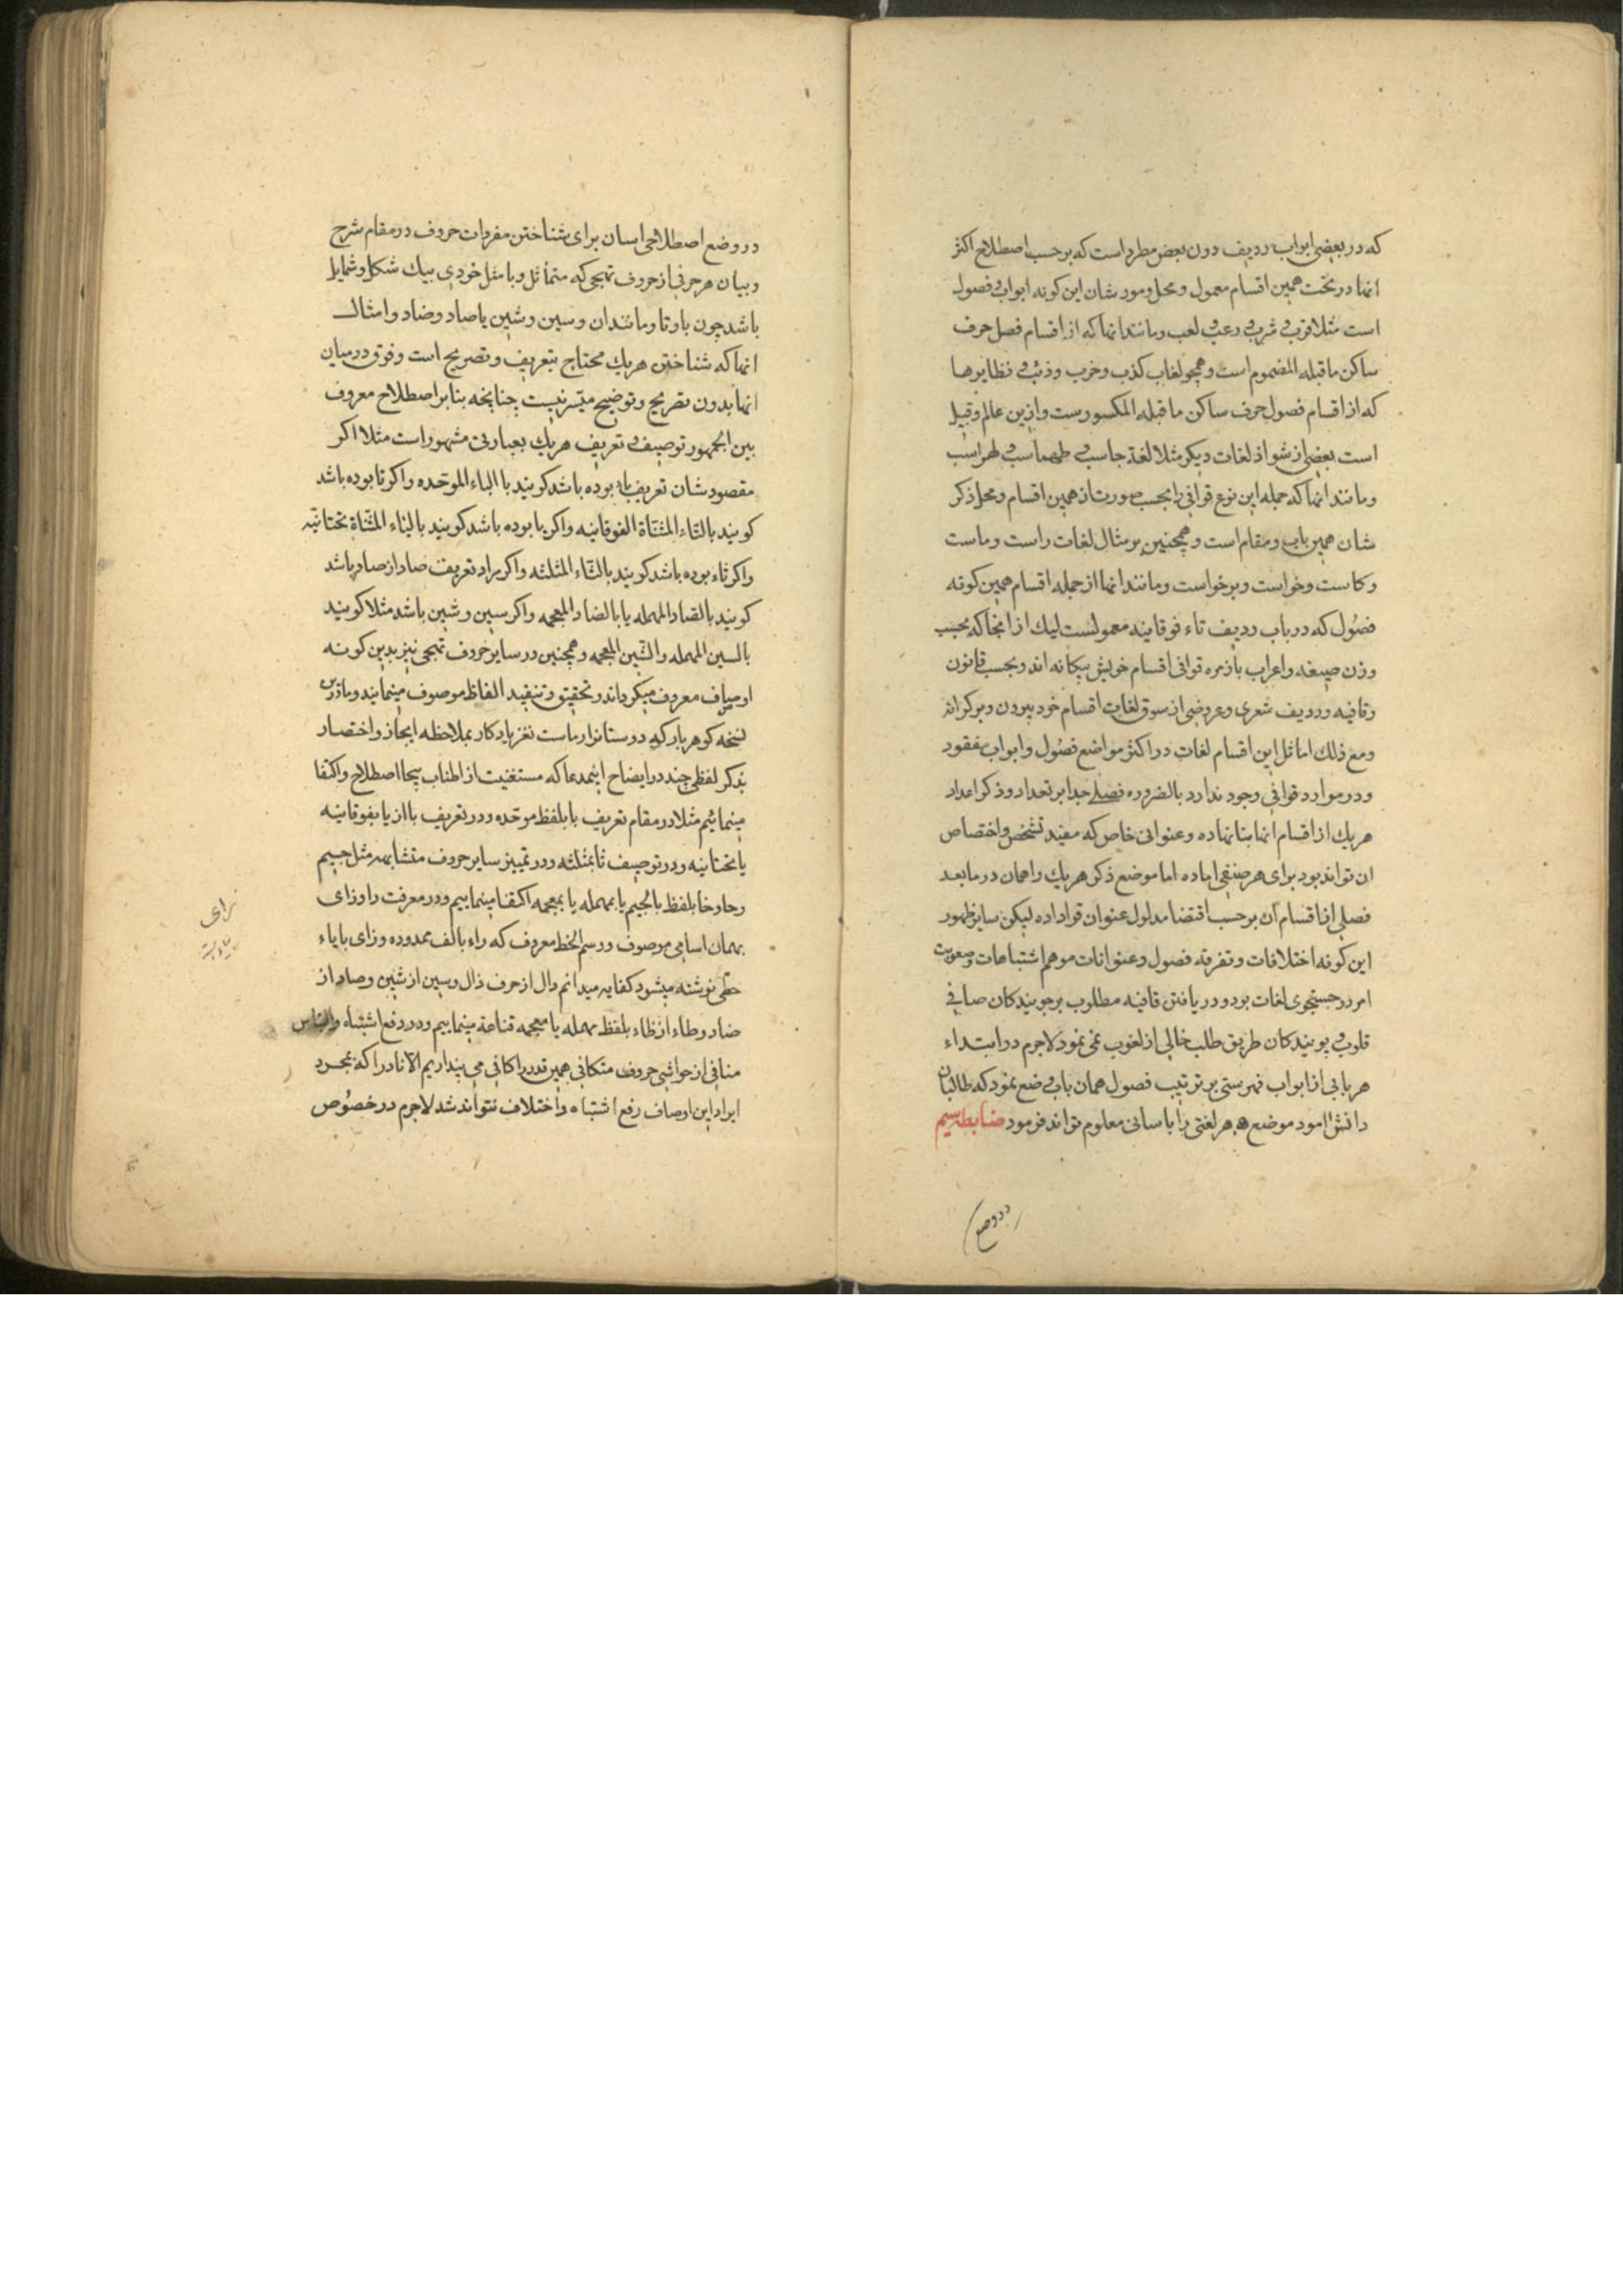 که در بعضی ابواب ردیف دون بعض مطرد است که بر حسب اصطلاح اکثر
انها در تحت همین اقسام معمول و محل و مورد شان این کونه ابواب و فصول
است مثلا قرب و شرب و رعب و لعب و مانند انها که از اقسام فصل حرف
ساکن ماقبله المضموم است و همچو لغات کذب و خرب و ذئب و نظایرها
که از اقسام فصول حرف ساکن ماقبله المکسورست و ازین عالم و قبیل
است بعضی از شواذ لغات دیکر مثلا لغة جاسب و طهماسب و لهراسب
و مانند انها که جمله این نوع قوافی را بحسب صورت از همین اقسام و محل ذکر
شان همین باب و مقام است و همچنین بر مثال لغات راست و ماست
و کاست و خواست و برخواست و مانند انها از جمله اقسام همین کونه
فصول که در باب ردیف تاء فوقانیه معمولست لیک از انجا که بحسب
وزن صیغه و اعراب با زمره قوافی اقسام خویش بیکانه اند و بحسب قانون
و قافیه و ردیف شعری و عروضی از سوق لغات اقسام خود بیرون و بر کرانه
ومع ذلک اماثل این اقسام لغات در اکثر مواضع فصول و ابواب مفقود
و در موارد قوافی وجود ندارد بالضروره فصلی جدا بر تعداد و ذکر اعداد
هر یک از اقسام انها بنا نهاده و عنوانی خاص که مفید تشخص و اختصاص
ان تواند بود برای هر صنفی اماده اما موضع ذکر هر یک را همان در مابعد
فصلی از اقسام آن بر حسب اقتضا مدلول عنوان قرار داده لیکن سایر ظهور
این کونه اختلافات و تفرقه فصول و عنوانات موهم اشتباهات و صعوبت
امر در جستجوی لغات بود و در یافتن قافیه مطلوب بر جویندکان صافی
قلوب و پویندکان طریق طلب خالی از لغوب نمی نمود لاجرم در ابتداء
هر بابی از ابواب فهرستی بر ترتیب فصول همان باب وضع نمود که طالبان
دانش امود موضع هر لغتی را باسانی معلوم تواند فرمود ضابطه سیم
در وضع
در وضع اصطلاحی اسان برای شناختن مفردات حروف در مقام شرح
و بیان هر حرفی از حروف تهجی که متماثل و با مثل خودی بیک شکل و شمایل
باشد چون با و تا و مانند ان و سین و شین یا صاد و ضاد و امثال
انها که شناختن هر یک محتاج بتعریف و تصریح است و فرق در میان
انها بدون تصریح و توضیح میسر نیست چنانچه بنابر اصطلاح معروف
بین الجمهور توصیف و تعریف هر یک بعبارتی مشهور است مثلا اکر
مقصود شان تعریف باء بوده باشد کویند با الباء الموحده و اکر تا بوده باشد
کویند بالتاء المثناة الفوقانیه و اکر یا بوده باشد کویند بالیاء المثناة تحتانیه
و اکر ثاء بوده باشد کویند بالثاء المثلثه و اکر مراد تعریف صاد از ضاد باشد
کویند بالصاد المهمله یا بالضاد المعجمه و اکر سین و شین باشد مثلا کویند
بالسین المهمله و الشین المعجمه و همچنین در سایر حروف تهجی نیز بدین کونه
اوصاف معروف میکرداند و تحقیق و تنقید الفاظ موصوف مینمایند و ما درین
نسخه کوهربار که دوستانرا از ماست نغز یادکار بملاحظه ایجاز و اختصار
بذکر لفظی چند در ایضاح اینمدعا که مستغنیست از اطناب بیجا اصطلاح و اکتفا
مینمائیم مثلا در مقام تعریف با بلفظ موحده و در تعریف تا از یا بفوقانیه
یا تحتانیه و در توصیف ثا بمثلثه و در تمییز سایر حروف متشابهه مثل جیم
و حا و خا بلفظ بالجیم یا بمهمله یا بمعجمه اکتفا مینماییم و در معرفت را و زای
بهمان اسامی موصوف و رسم الخط معروف که راء بالف ممدوده و زای بایاء
حطی نوشته میشود کفایه میدانم دال از حرف ذال و سین از شین و صاد از
ضاد و طاء از ظاء بلفظ مهمله یا معجمه قناعة مینماییم و در دفع اشتباه و التباس
منافی از حواشی حروف متکافی همین قدر را کافی می پنداریم الا نادرا که بمجرد
ایراد این اوصاف رفع اشتباه و اختلاف نتواند شد لاجرم در خصوص
زای